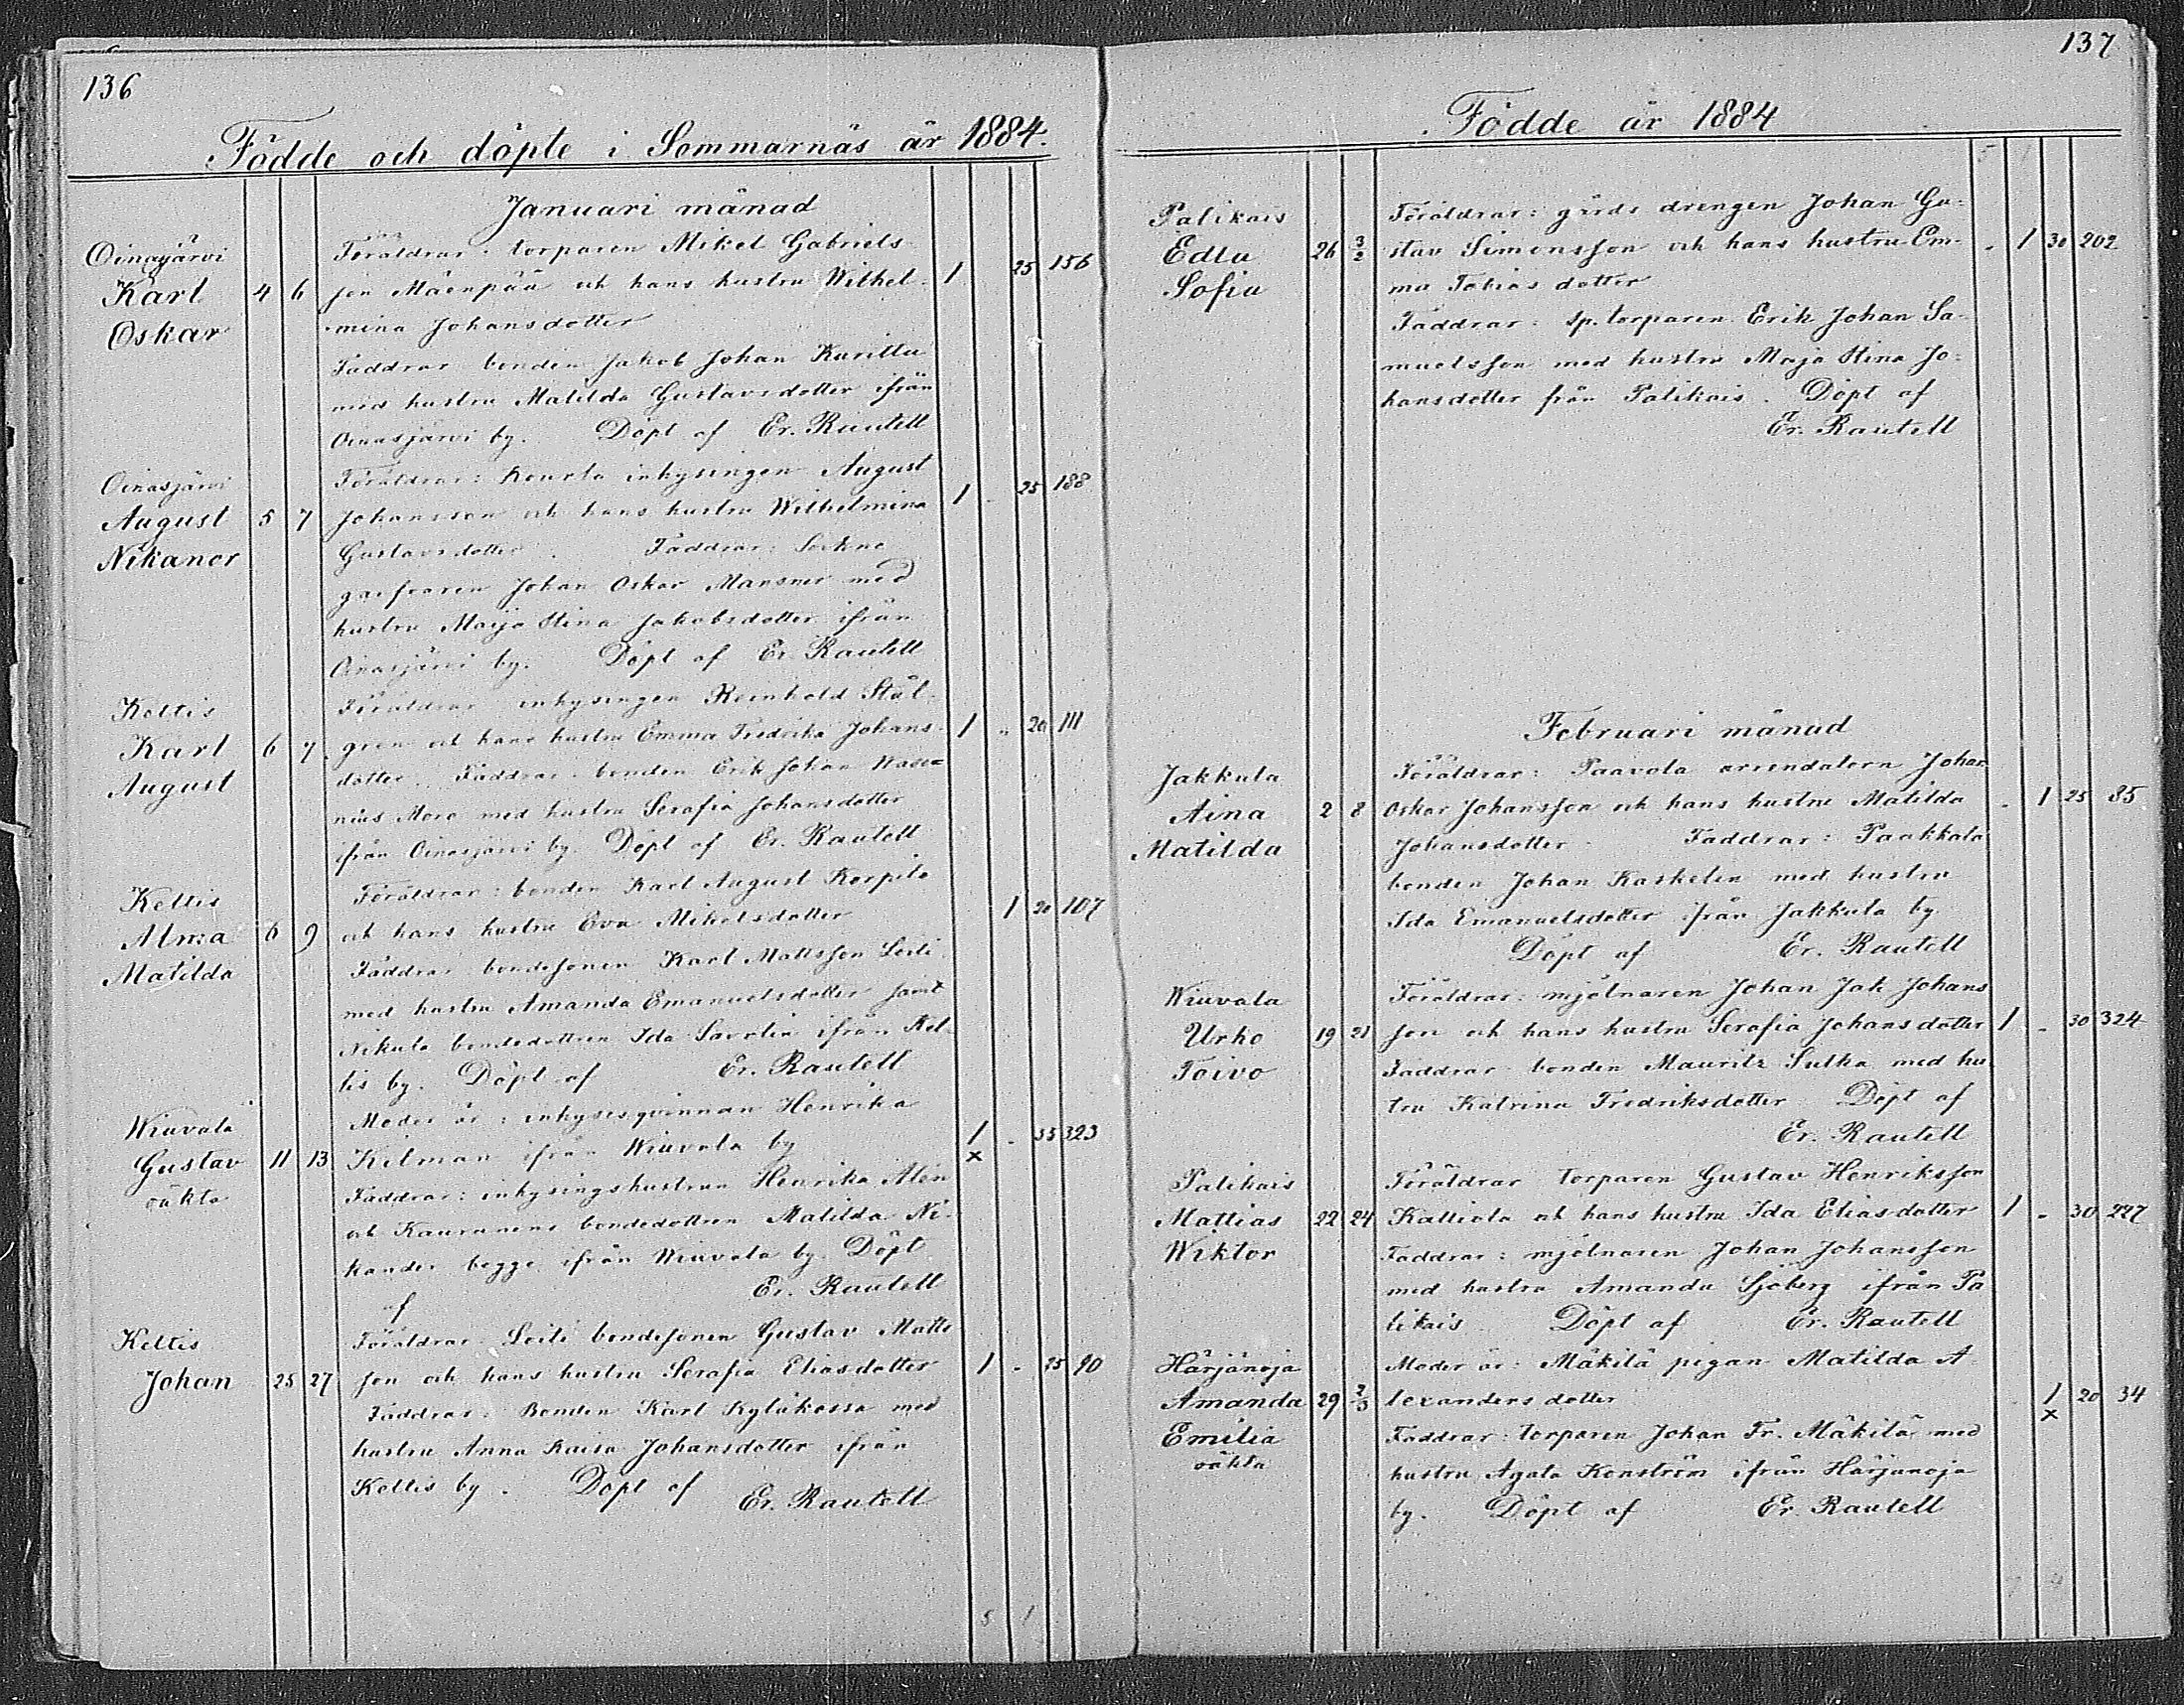 136
Födde och döpte i Sommarnäs år 1884.
Januari månad
Oinasjärvi
Karl
Oskar
4 6
Föräldrar: torparen Mikel Gabriels-
son Mäenpää och hans hustru Wilhel-
mina Johansdotter
1 25 156
Faddrar bonden Jakob Johan Kurittu
med hustru Matilda Gustavsdotter ifrån
Oinasjärvi by. Döpt af Er. Rautell
Oinasjärvi
August
Nikanor
5 7
Föräldrar: Kourla inhysingen August
Johansson och hans hustru Wilhelmina
Gustavsdotter. Faddrar: Sockne
garfvaren Johan Oskar Mansner med
hustru Maija Stina Jakobsdotter ifrån
Oinasjärvi by. Döpt af Er. Rautell
1 - 25 188
Keltis
Karl
August
6 7
Föräldrar inhysingen Reinhold Stål-
gren och hans hustru Emma Fredrika Johans-
dotter. Faddrar: bonden Erik Johan Wase=
nius Moro med hustru Serafia Johansdotter
ifrån Oinasjärvi by. Döpt af Er. Rautell
1 " 20 111
Keltis
Alma
Matilda
6 9
Föräldrar: bonden Karl August Korpilo
och hans hustru Eva Mikelsdotter
1 20 107
Faddrar bondesonen Karl Mattsson Seili
med hustru Amanda Emanuelsdotter samt
Nikula bondedottren Ida Savolin ifrån Kel-
tis by. Döpt af Er. Rautell
Wiuvala
Gustav
oäkta
11 13
Moder är: inhysesqvinnan Henrika
Kilman ifrån Wiuvala by
1 - 35 323
x
Faddrar: inhysingshustrun Henrika Alén
och Kauranens bondedottren Matilda Ni-
kander begge ifrån Wiuvala by. Döpt
af Er. Rautell
Keltis
Johan
25 27
Föräldrar Seili bondesonen Gustav Matts
son och hans hustru Serafia Eliasdotter
1 - 25 90
Faddrar: Bonden Karl Kyläkossa med
hustru Anna Kaisa Johansdotter ifrån
Keltis by. Döpt af Er. Rautell
5 1
137
Födde år 1884
5 1
Palikais
Edla
Sofia
26 3/2
Föräldrar: gårds drengen Johan Gu-
stav Simonsson och hans hustru Em-
ma Tobias dotter
- 1 30 202
Faddrar: sp. torparen Erik Johan Sa-
muelsson med hustru Maja Stina Jo-
hansdotter från Palikais. Döpt af
Er. Rautell
Februari månad
Jakkula
Aina
Matilda
2 8
Föräldrar: Paavola arrendatorn Johan
Oskar Johansson och hans hustru Matilda
Johansdotter. Faddrar: Paakkala
bonden Johan Kaskelin med hustru
Ida Emanuelsdotter ifrån Jakkula by
Döpt af Er. Rautell
- 1 25 85
Wiuvala
Urho
Toivo
19 21
Föräldrar: mjölnaren Johan Jak Johans
son och hans hustru Serafia Johansdotter
1 - 30 324
Faddrar bonden Mauritz Sulka med hu-
tru Katrina Fredriksdotter Döpt af
Er. Rautell
Palikais
Mattias
Wiktor
22 24
Föräldrar torparen Gustav Henriksson
Kalliola och hans hustru Ida Eliasdotter
1 - 30 227
Faddrar: mjölnaren Johan Johansson
med hustru Amanda Sjöberg ifrån Pa
likais Döpt af Er. Rautell
Härjänoja
Amanda
Emilia
oäkta
29 2/3
Moder är: Mäkilä pigan Matilda A
lexanders dotter
1 20 34
x
Faddrar: torparen Johan Fr. Mäkilä med
hustru Agata Konström ifrån Härjänoja
by. Döpt af Er. Rautell